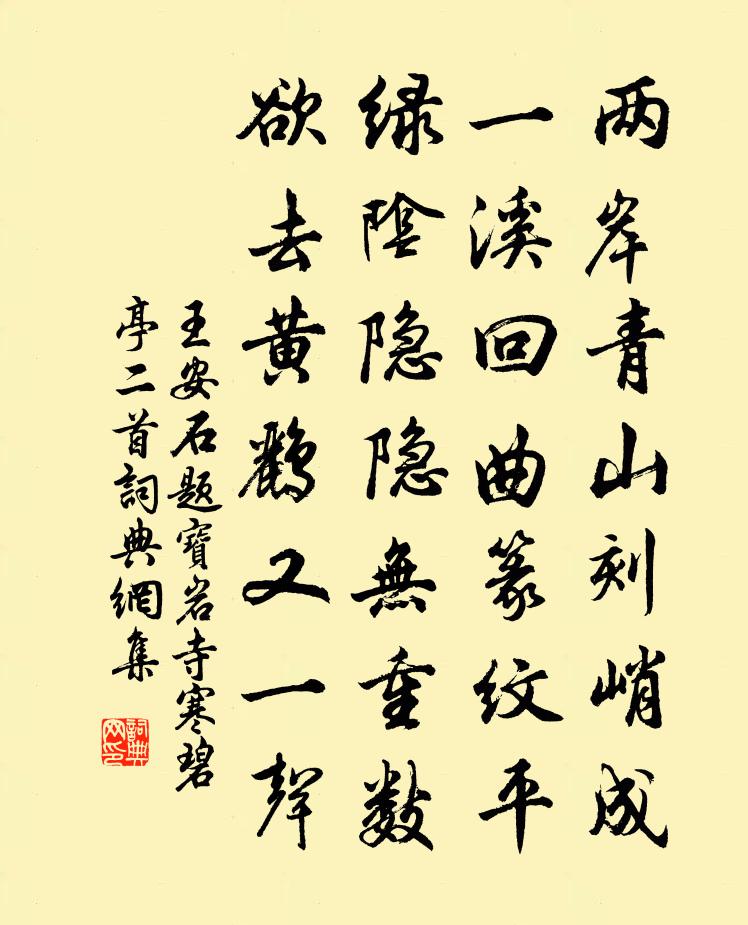 两岸青山刻峭成
一溪回曲篆纹平
绿陰隐隐無重数
欲去黄鹂又一聲
王安石题寶岩寺寒碧
亭二首詞典網集
詞典網印